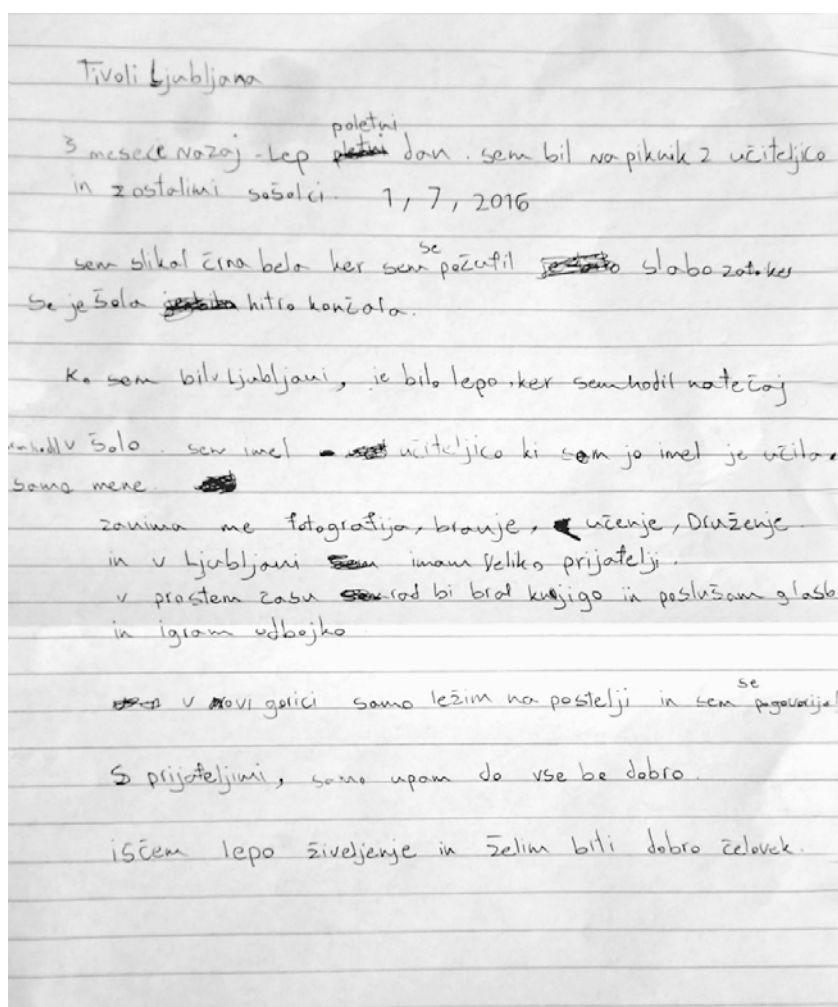 Tivoli Ljubljana
3 mesece nazaj - Lep poletni dan. sem bil na piknik z učiteljico
in z ostalimi sošolci. 1, 7, 2016
sem slikal črna bela ker sem se počutil slabo zato ker
se je šola hitro končala.
Ko sem bil v Ljubljani, je bilo lepo. ker sem hodil na tečaj
v šolo. sem imel učiteljico ki sem jo imel je učila
samo mene.
zanima me fotografija, branje, učenje, Druženje.
in v Ljubljani imam veliko prijatelji.
v prostem času rad bi bral knjigo in poslušam glasb
in igram odbojko
v Novi gorici samo ležim na postelji in sem se pogovorijal
S prijateljimi, samo upam da vse be dobro.
iščem lepo živeljenje in želim biti dobro čelovek.